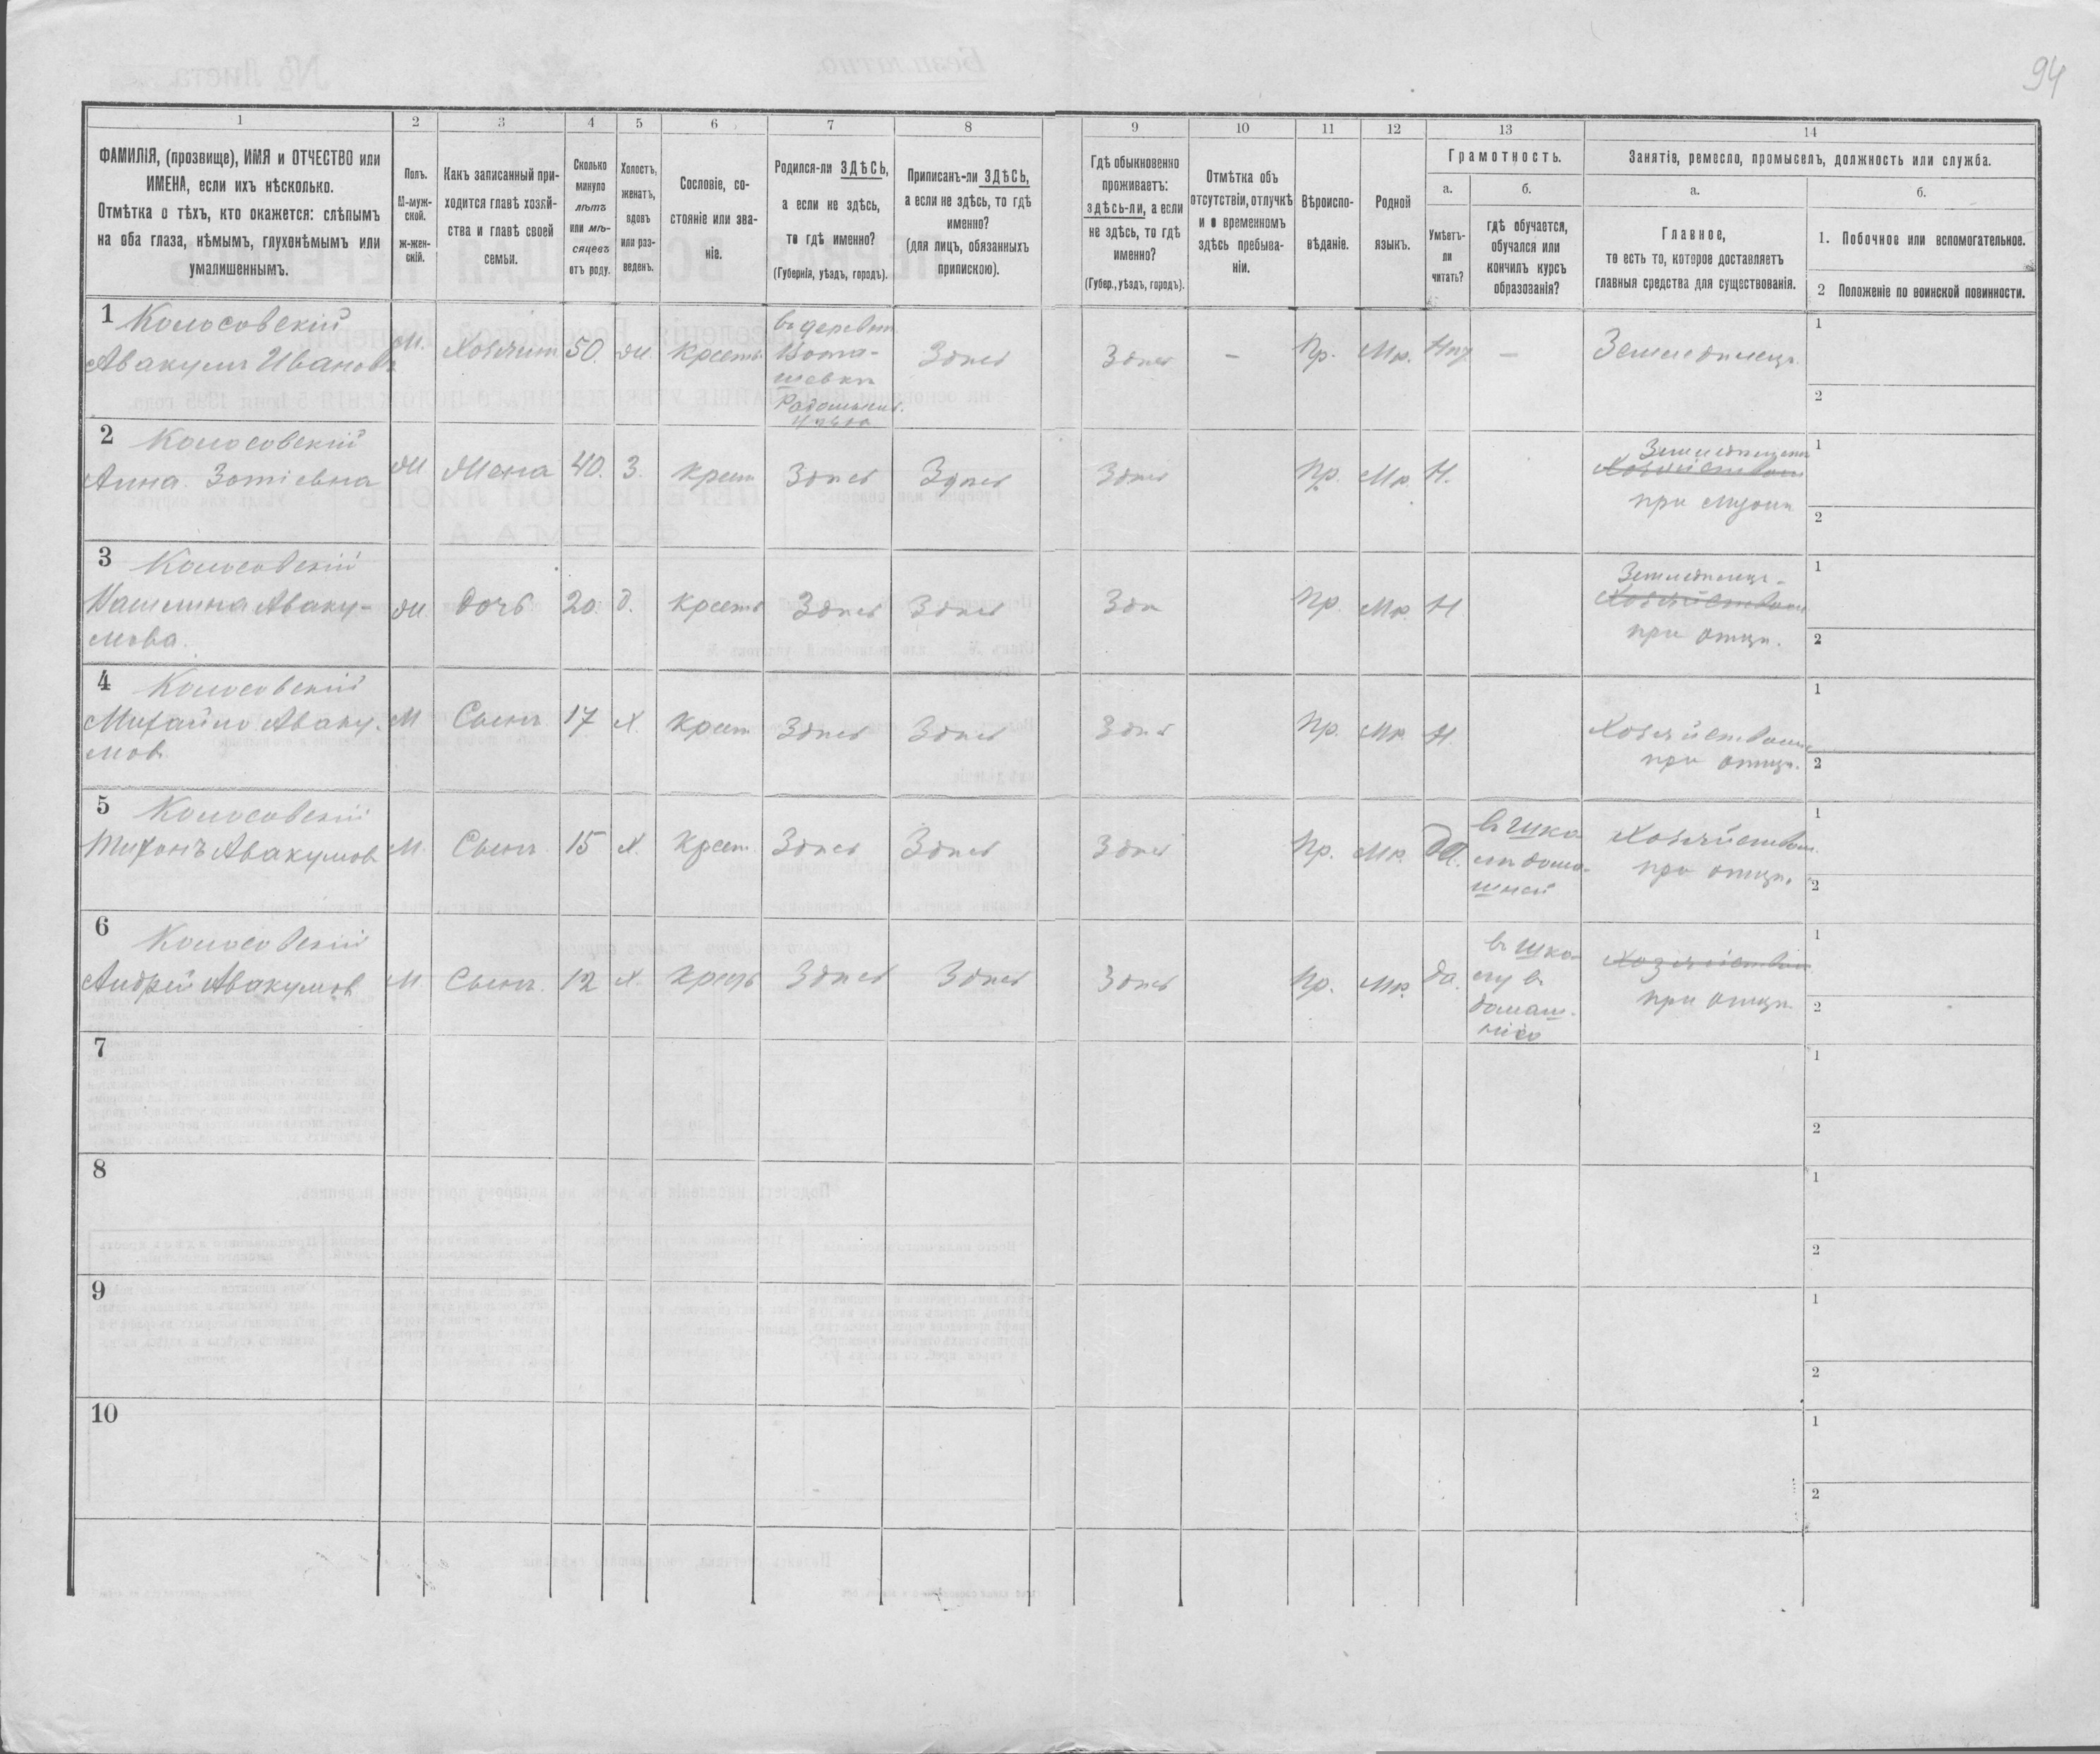 94
1
2
3
4
5
6
7
8
9
10
11
12
13
14
ФАМИЛІЯ, (прозвище), ИМЯ и ОТЧЕСТВО или
ИМЕНА, если ихъ нѣсколько.
Отмѣтка о тѣхъ, кто окажется: слѣпымъ
на оба глаза, нѣмымъ, глухонѣмымъ или
умалишеннымъ.
Полъ.
М-муж-
ской.
ж-жен-
скій.
Какъ записанный при-
ходится главѣ хозяй-
ства и главѣ своей
семьи.
Сколько
минуло
лѣтъ
или мѣ-
сяцевъ
отъ роду.
Холостъ,
женатъ,
вдовъ
или раз-
веденъ.
Сословіе, со-
стояніе или зва-
ніе.
Родился-ли ЗДѢСЬ,
а если не здѣсь,
то гдѣ именно?
(Губернія, уѣздъ, городъ).
Приписанъ-ли ЗДѢСЬ,
а если не здѣсь, то гдѣ
именно?
(для лицъ, обязанныхъ
припискою).
Гдѣ обыкновенно
проживаетъ:
здѣсь-ли, а если
не здѣсь, то гдѣ
именно?
(Губер., уѣздъ, городъ).
Отмѣтка объ
отсутствіи, отлучкѣ
и о временномъ
здѣсь пребыва-
ніи.
Вѣроиспо-
вѣданіе.
Родной
языкъ.
Грамотность.
а.
б.
Умѣетъ-
ли
читать?
гдѣ обучается,
обучался или
кончилъ курсъ
образованія?
Занятіе, ремесло, промыселъ, должность или служба.
а.
б.
Главное,
то есть то, которое доставляетъ
главныя средства для существованія.
1. Побочное или вспомогательное.
2 Положеніе по воинской повинности.
1 Колосовскій
Авакумъ Ивановъ
М. Хозяинъ 50. ж. крестъ
въ деревни
шевки
Здѣсь Здѣсь — Пр. Мр. — Земледѣлецъ
1
2
2 Колосовскій
Анна Зотіевна ж Жена 40. З. крест Здѣсь Здѣсь Здѣсь Пр. Мр Н.
Хозяйством
при мужѣ
1
2
3 Колосовскій
Авакумова ж. дочь 20. д. крестъ Здѣсь Здѣсь Здѣ Пр. Мр. Н
Земледѣлец.
Хозяйством
при отцѣ.
1
2
4 Колосовскій
Михайло Аваку-
мов
М Сынъ 17 х. крест Здѣсь Здѣсь Здѣсь Пр. Мр. Н
Хозяйством
при отцѣ.
1
2
5 Колосовскій
Тихонъ Авакумов М. Сынъ 15 х. крест. Здѣсь Здѣсь Здѣсь Пр. Мр. да.
в шко-
лѣ дома-
шней
Хозяйством
при отцѣ.
1
2
6 Колосовскій
Андрей Авакумов М Сынъ 12 х. крест Здѣсь Здѣсь Здѣсь Пр. Мр. да.
в шко-
при отцѣ
1
2
7
1
2
8
1
2
9
1
2
10
1
2